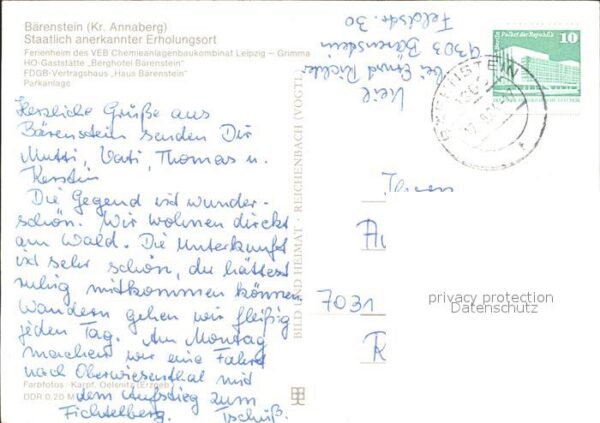 Bärenstein (Kr. Annaberg)
Staatlich anerkannter Erholungsort
Ferienheim des VEB Chemieanlagenbaukombinat Leipzig – Grimma
HO-Gaststätte „Berghotel Bärenstein"
FDGB-Vertragshaus „Haus Bärenstein"
Parkanlage
Herzliche Grüße aus
Bärenstein senden Dir
Mutti, Vati, Thomas u.
Kerstin
Die Gegend ist wunder-
schön. Wir wohnen direkt
am Wald. Die Unterkunft
ist sehr schön, du hättest
ruhig mitkommen können
Wandern gehen wir fleißig
jeden Tag. Am Montag
machen wir eine Fahrt
nach Oberwiesenthal mit
dem Aufstieg zum
Fichtelberg. Tschüß.
Farbfotos: Karpf, Oelsnitz (Erzgeb.)
DDR 0,20 M
BILD UND HEIMAT · REICHENBACH (VOGTL)
Keil
bei Ernst Richter
9303 Bärenstein
Feldstr. 30
Berlin Palast der Republik
10
BÄRENSTEIN
7031
privacy protection
Datenschutz